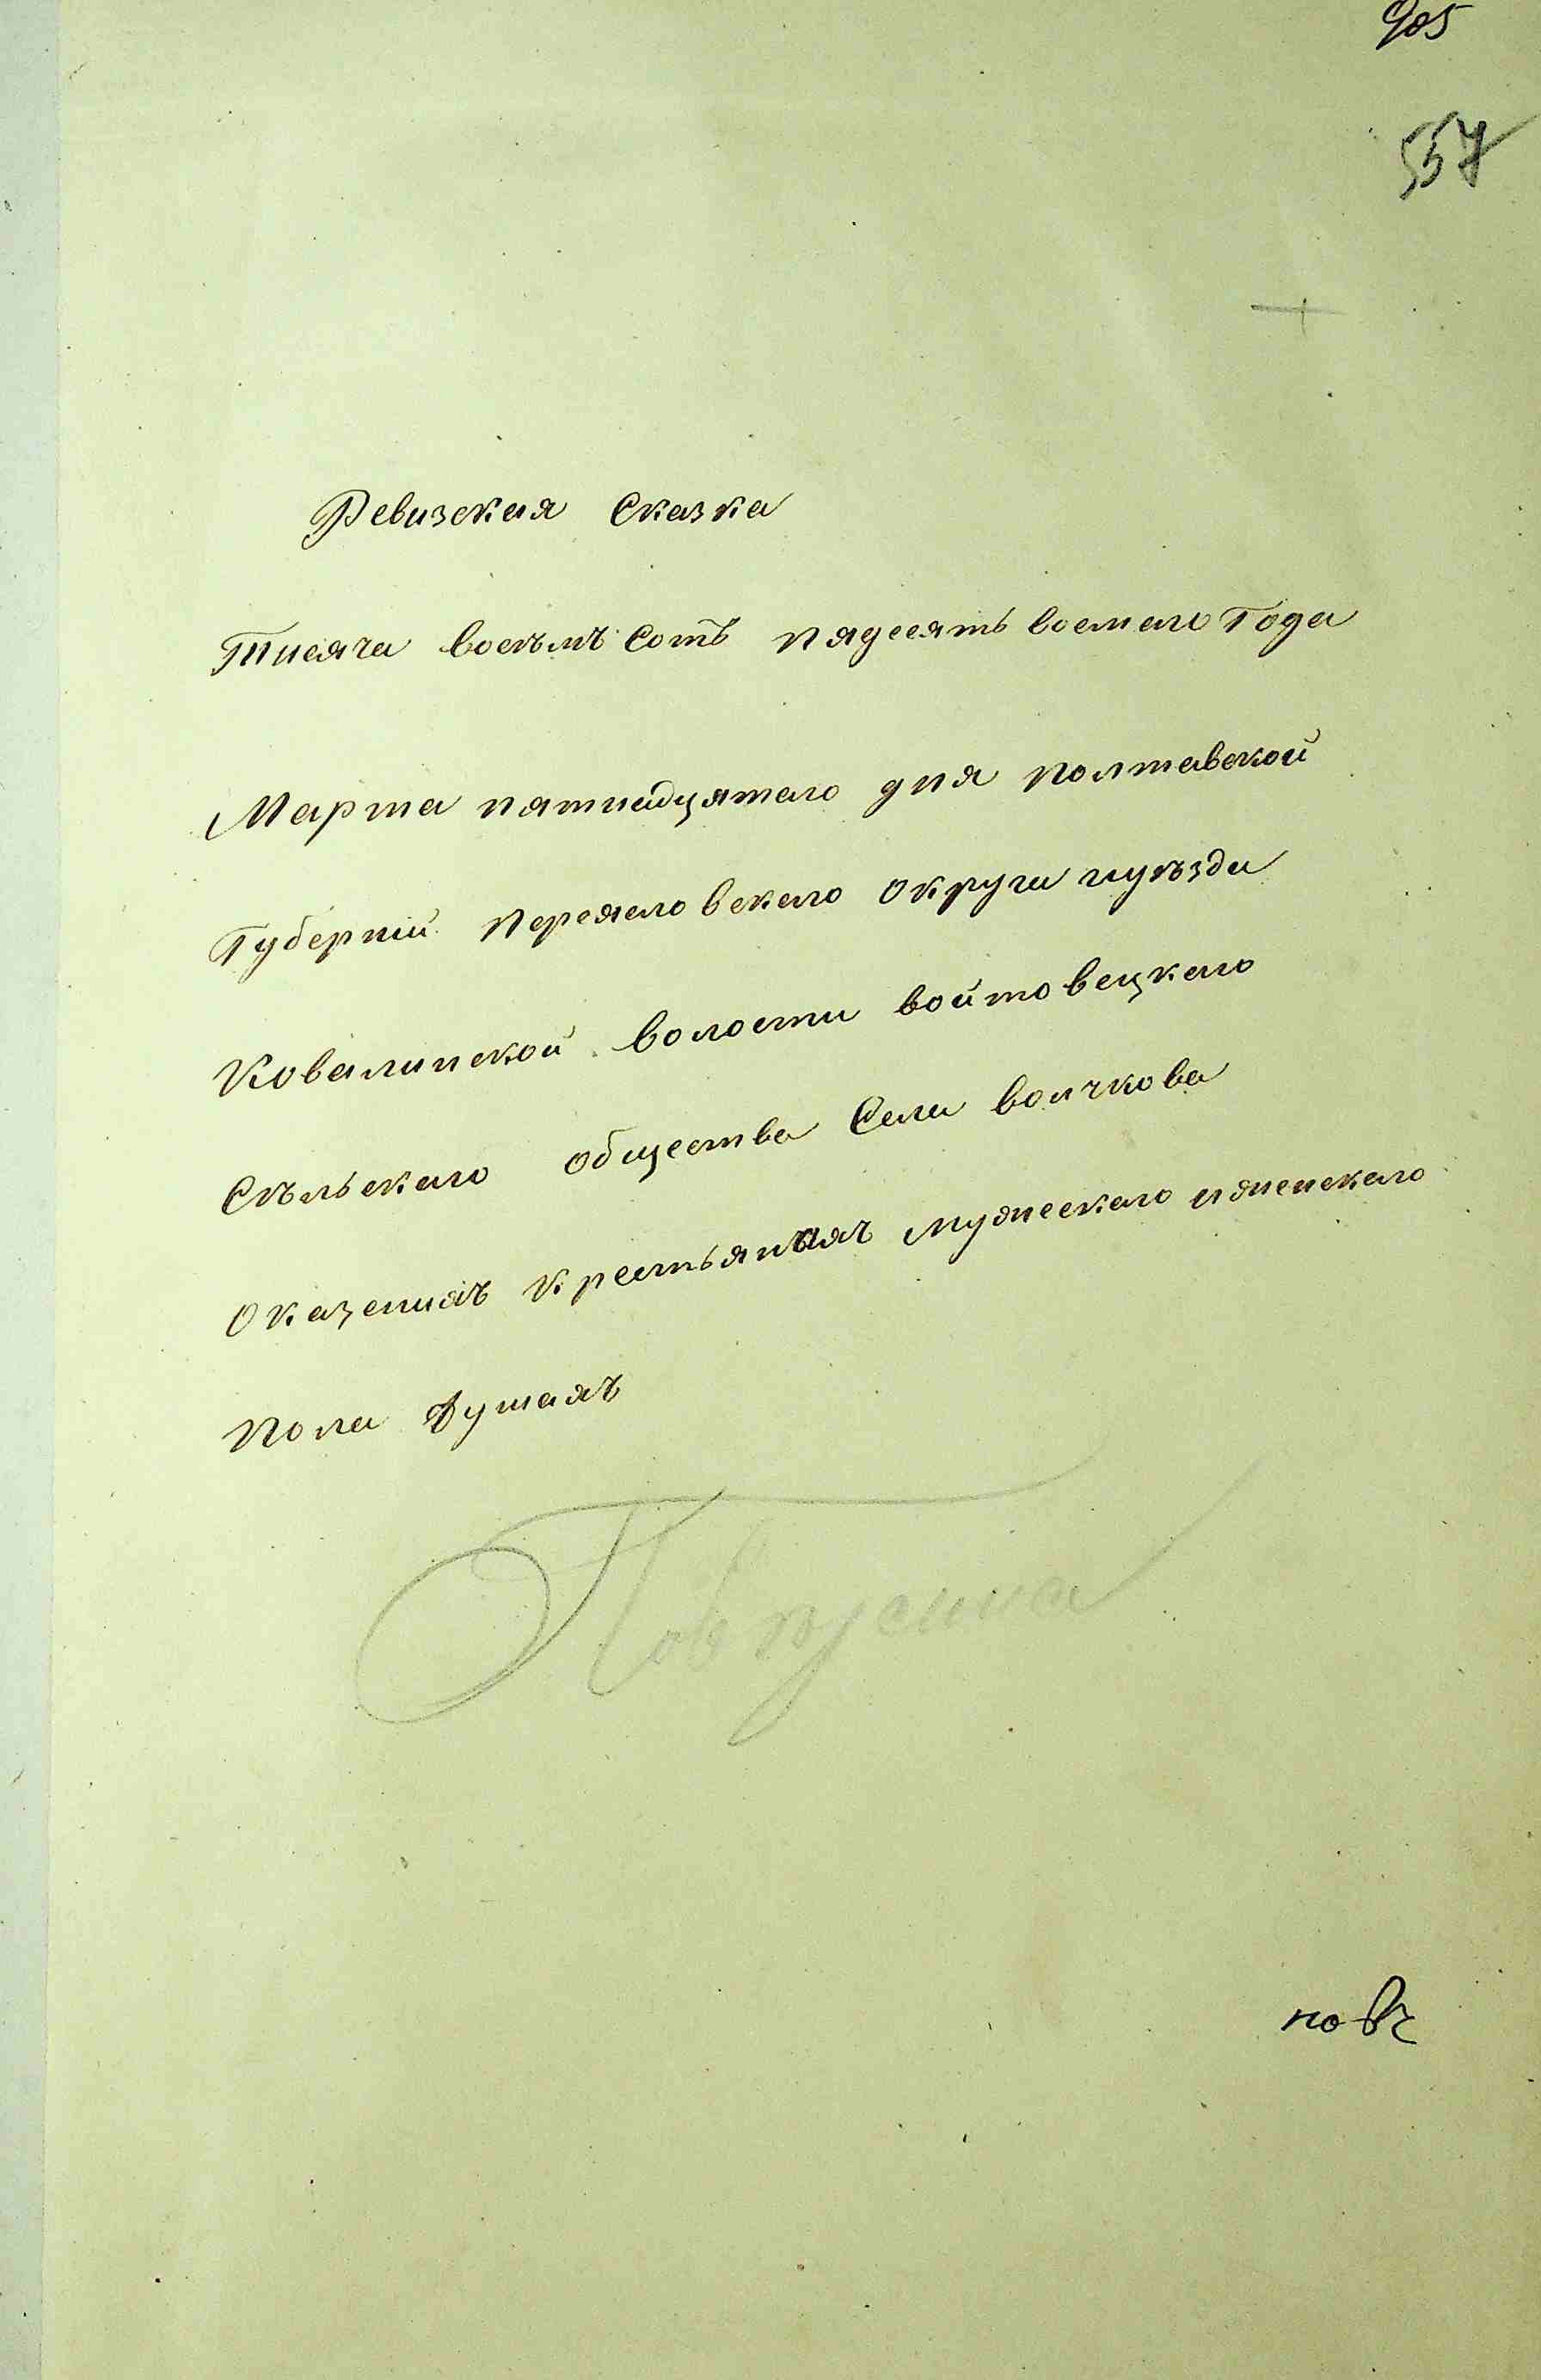 905
557
Ревизския Сказка
Тисяча восъмъ сотъ пядесять восмаго Года
Марта пятнадцятаго дня полтавской
Губерніи переясловскаго округи иуъзда
Ковалинской волости войтовецкаго
Съльскаго общества Села волчкова
Оказенихъ крестьянахъ мужескаго иженскаго
Пола душахъ